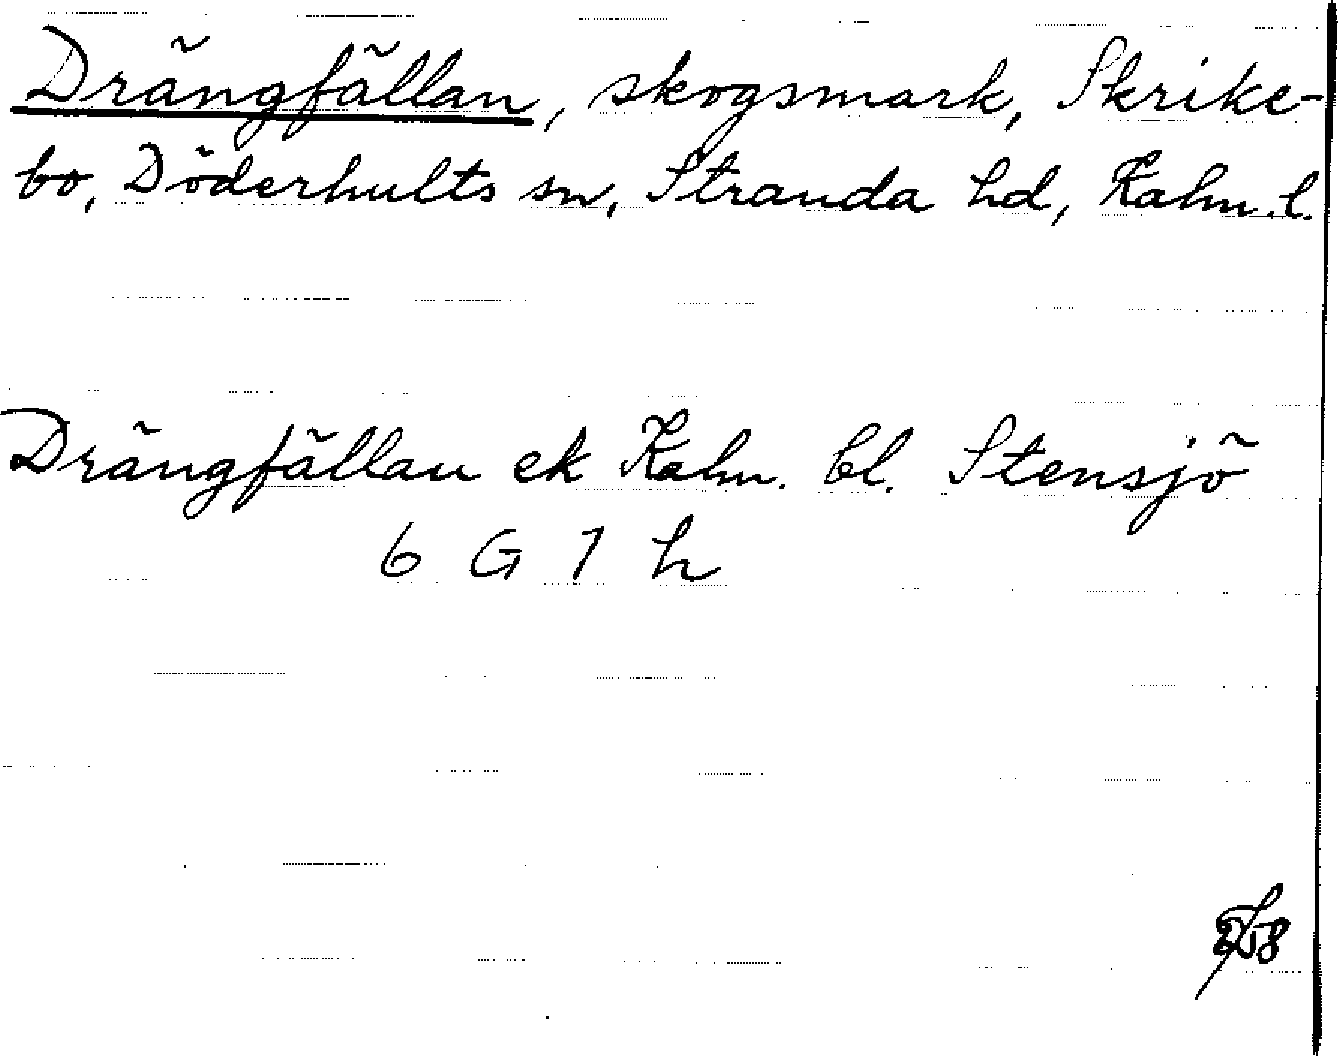 Drängfällan, skogsmark, Skrike-
bo, Döderhults sn, Stranda hd, Kalm. l.
Drängfällan ek Kalm. bl. Stensjö
6 G 7 h